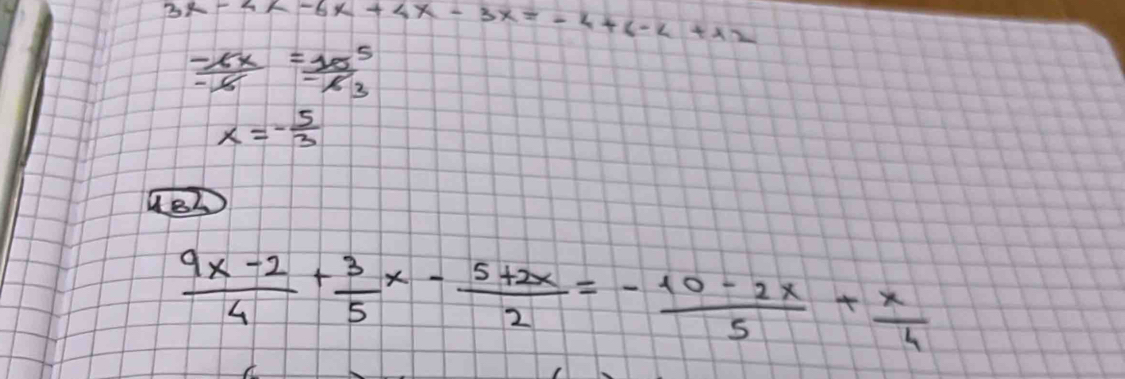 3x - 4x - 6x + 4x - 3x = - 4 + 6 - 4 + 12
-6x/-6 = 10/-6 5 3
x = - 5/3
184
(9x - 2)/4 + 3/5 x - (5 + 2x)/2 = - (10 - 2x)/5 + x/4